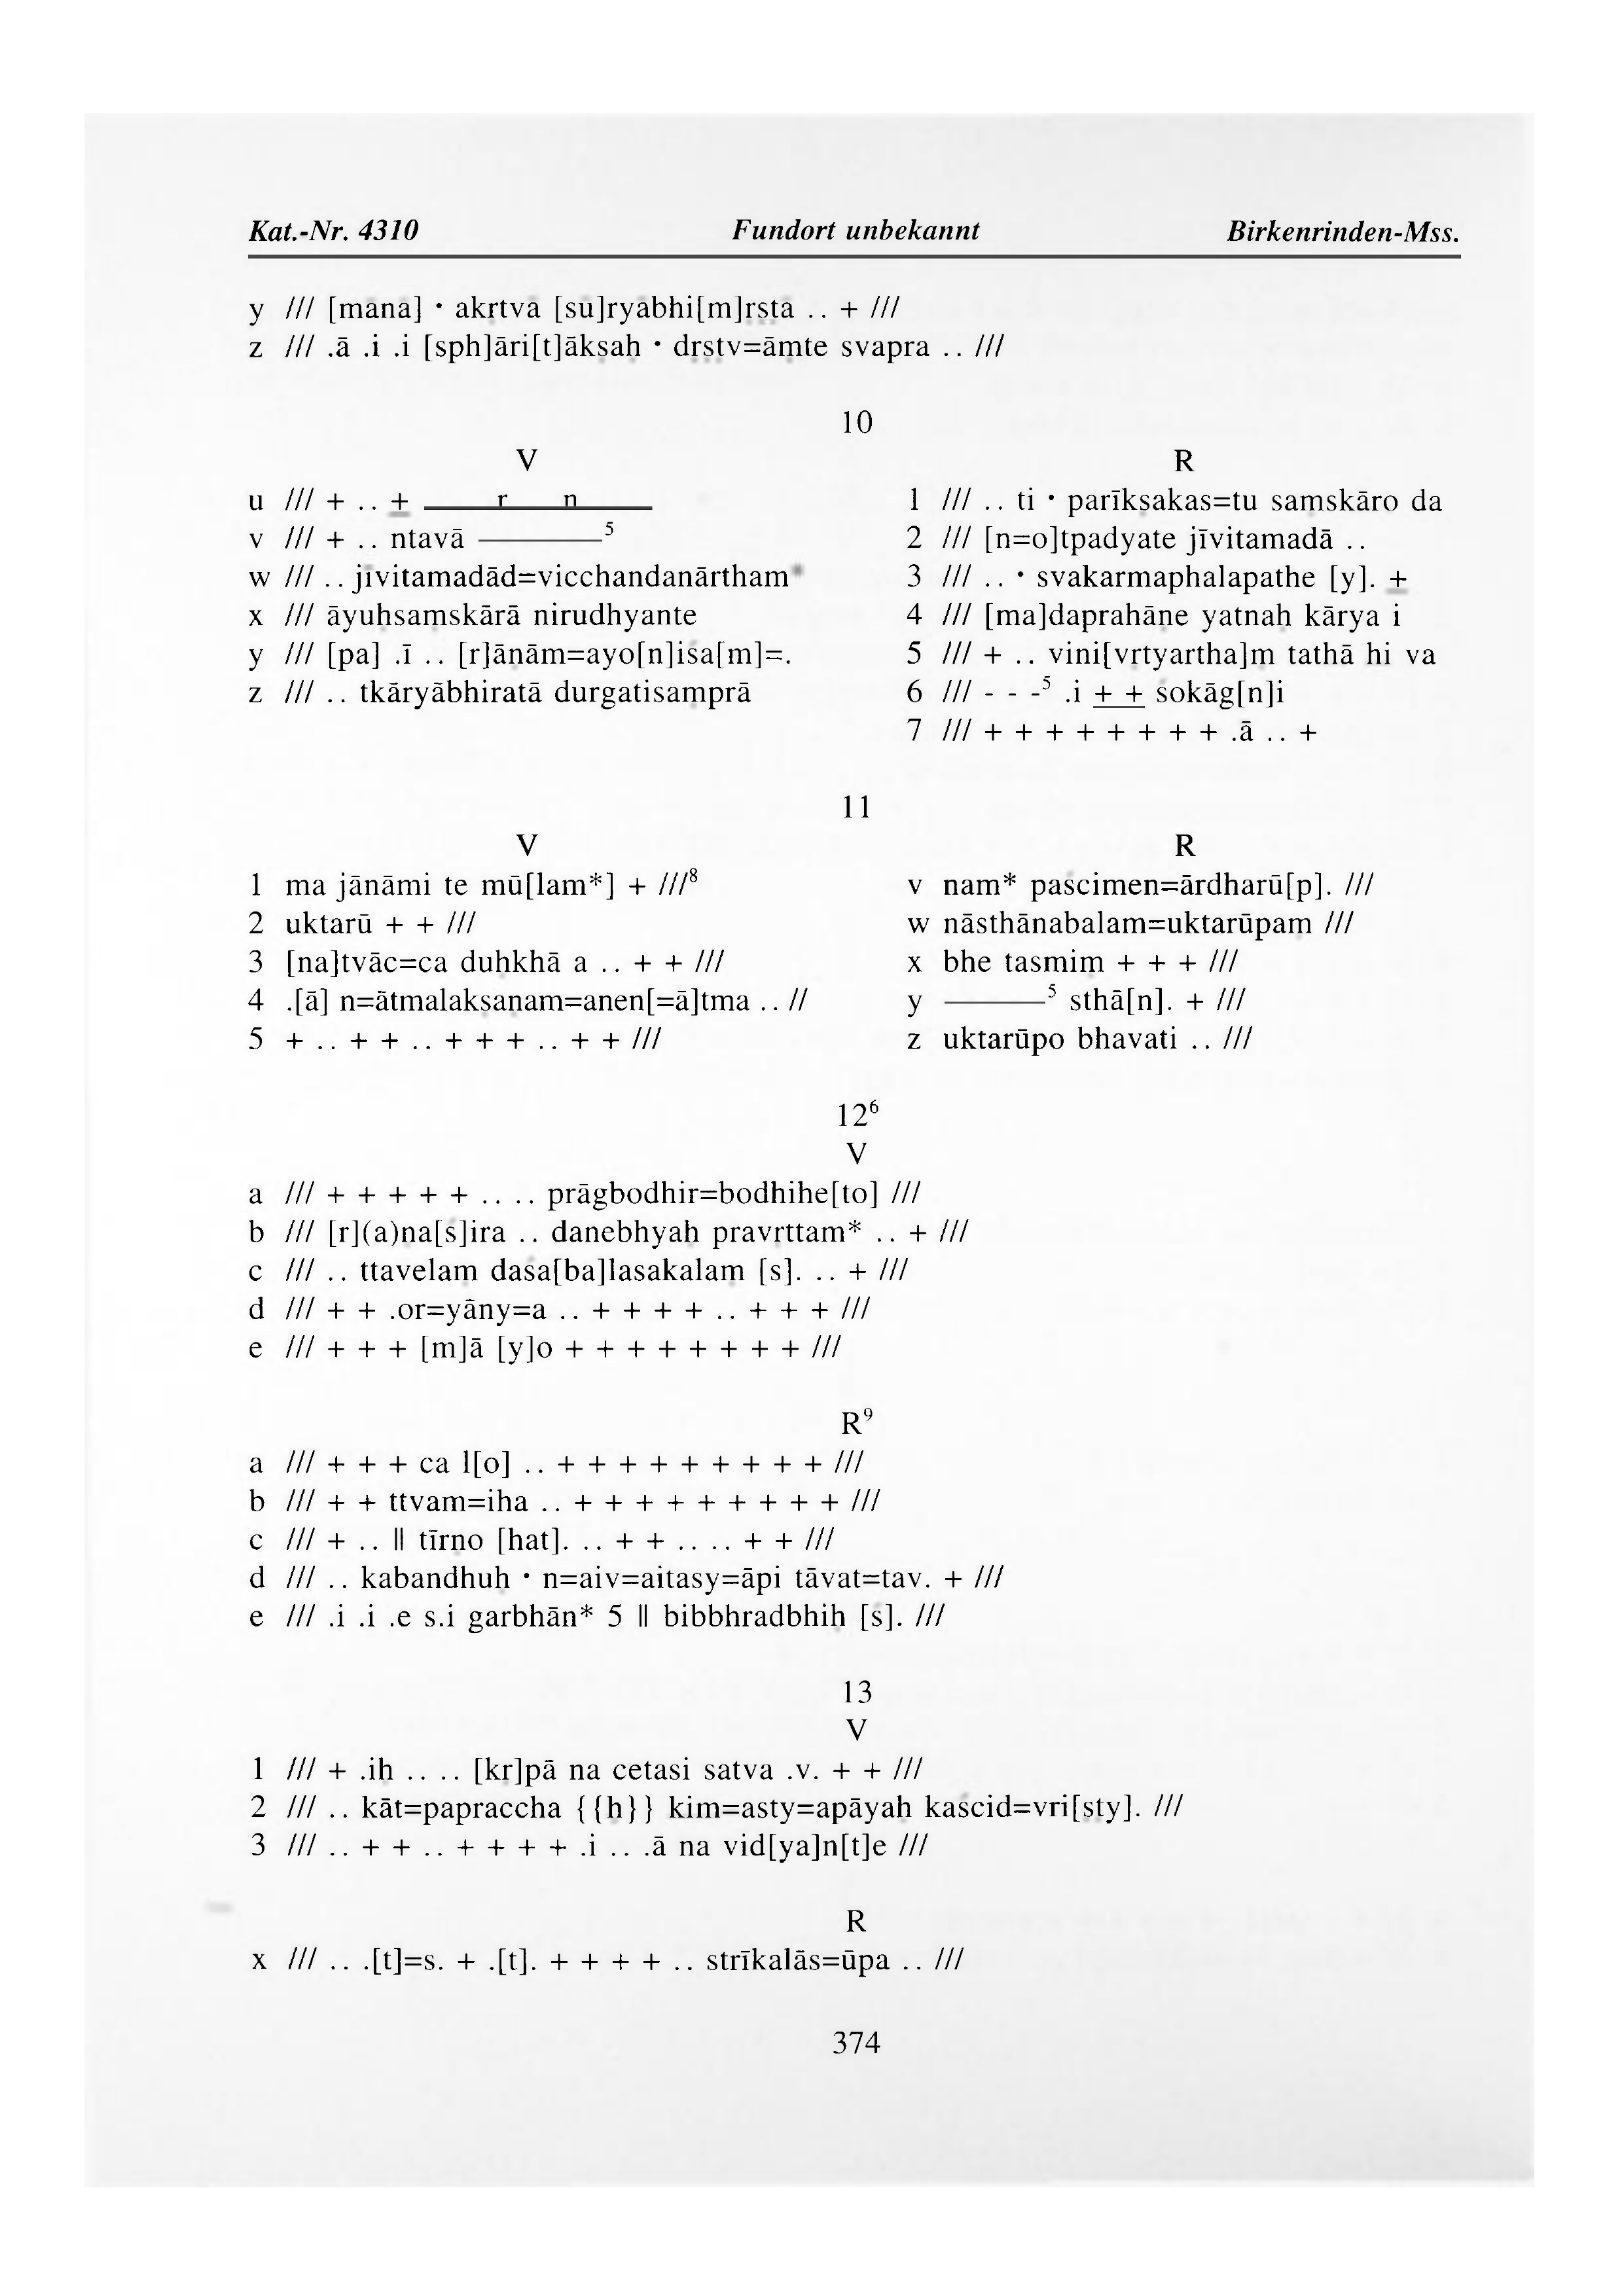 Kat.-Nr. 4310 Fundort unbekannt Birkenrinden-Mss.
y /// [mānā] • akṛtvā [sū]ryābhi[m]ṛṣṭā .. + ///
z /// .ā .i .i [sph]āri[t]ākṣaḥ • dṛṣṭv=āṃte svapra .. ///
10
V
u /// + .. + ——— r ——— n ———
v /// + .. ntavā ———⁵
w /// .. jīvitamadād=vicchandanārtham*
x /// āyuḥsaṃskārā nirudhyante
y /// [pa] .ī .. [r]āṇām=ayo[n]iśa[m]=.
z /// .. tkāryābhiratā durgatisaṃprā
R
1 /// .. ti • parīkṣakas=tu saṃskāro da
2 /// [n=o]tpadyate jīvitamadā ..
3 /// .. • svakarmaphalapathe [y]. +
4 /// [ma]daprahāṇe yatnaḥ kārya i
5 /// + .. vini[vṛtyartha]ṃ tathā hi va
6 /// - - -⁵ .i + + śokāg[n]i
7 /// + + + + + + + + .ā .. +
11
V
1 ma jānāmi te mū[lam*] + ///⁸
2 uktarū + + ///
3 [na]tvāc=ca duḥkhā a .. + + ///
4 .[ā] n=ātmalakṣaṇam=anen[=ā]tma .. //
5 + .. + + .. + + + .. + + ///
R
v nam* paścimen=ārdharū[p]. ///
w nāsthānabalam=uktarūpaṃ ///
x bhe tasmiṃ + + + ///
y ———⁵ sthā[n]. + ///
z uktarūpo bhavati .. ///
12⁶
V
a /// + + + + + .. .. prāgbodhir=bodhihe[to] ///
b /// [r](a)ṇa[ś]ira .. danebhyaḥ pravṛttam* .. + ///
c /// .. ttavelaṃ daśa[ba]lasakalaṃ [s]. .. + ///
d /// + + .or=yāny=a .. + + + + .. + + + ///
e /// + + + [m]ā [y]o + + + + + + + + ///
R⁹
a /// + + + ca l[o] .. + + + + + + + + + ///
b /// + + ttvam=iha .. + + + + + + + + + ///
c /// + .. ‖ tīrṇo [hat]. .. + + .. .. + + ///
d /// .. kabandhuḥ • n=aiv=aitasy=āpi tāvat=tav. + ///
e /// .i .i .e s.i garbhān* 5 ‖ bibbhradbhiḥ [ś]. ///
13
V
1 /// + .iḥ .. .. [kṛ]pā na cetasi satva .v. + + ///
2 /// .. kāt=papraccha {{ḥ}} kim=asty=apāyaḥ kaścid=vri[ṣṭy]. ///
3 /// .. + + .. + + + + .i .. .ā na vid[ya]n[t]e ///
R
x /// .. .[t]=s. + .[t]. + + + + .. strīkalās=ūpa .. ///
374